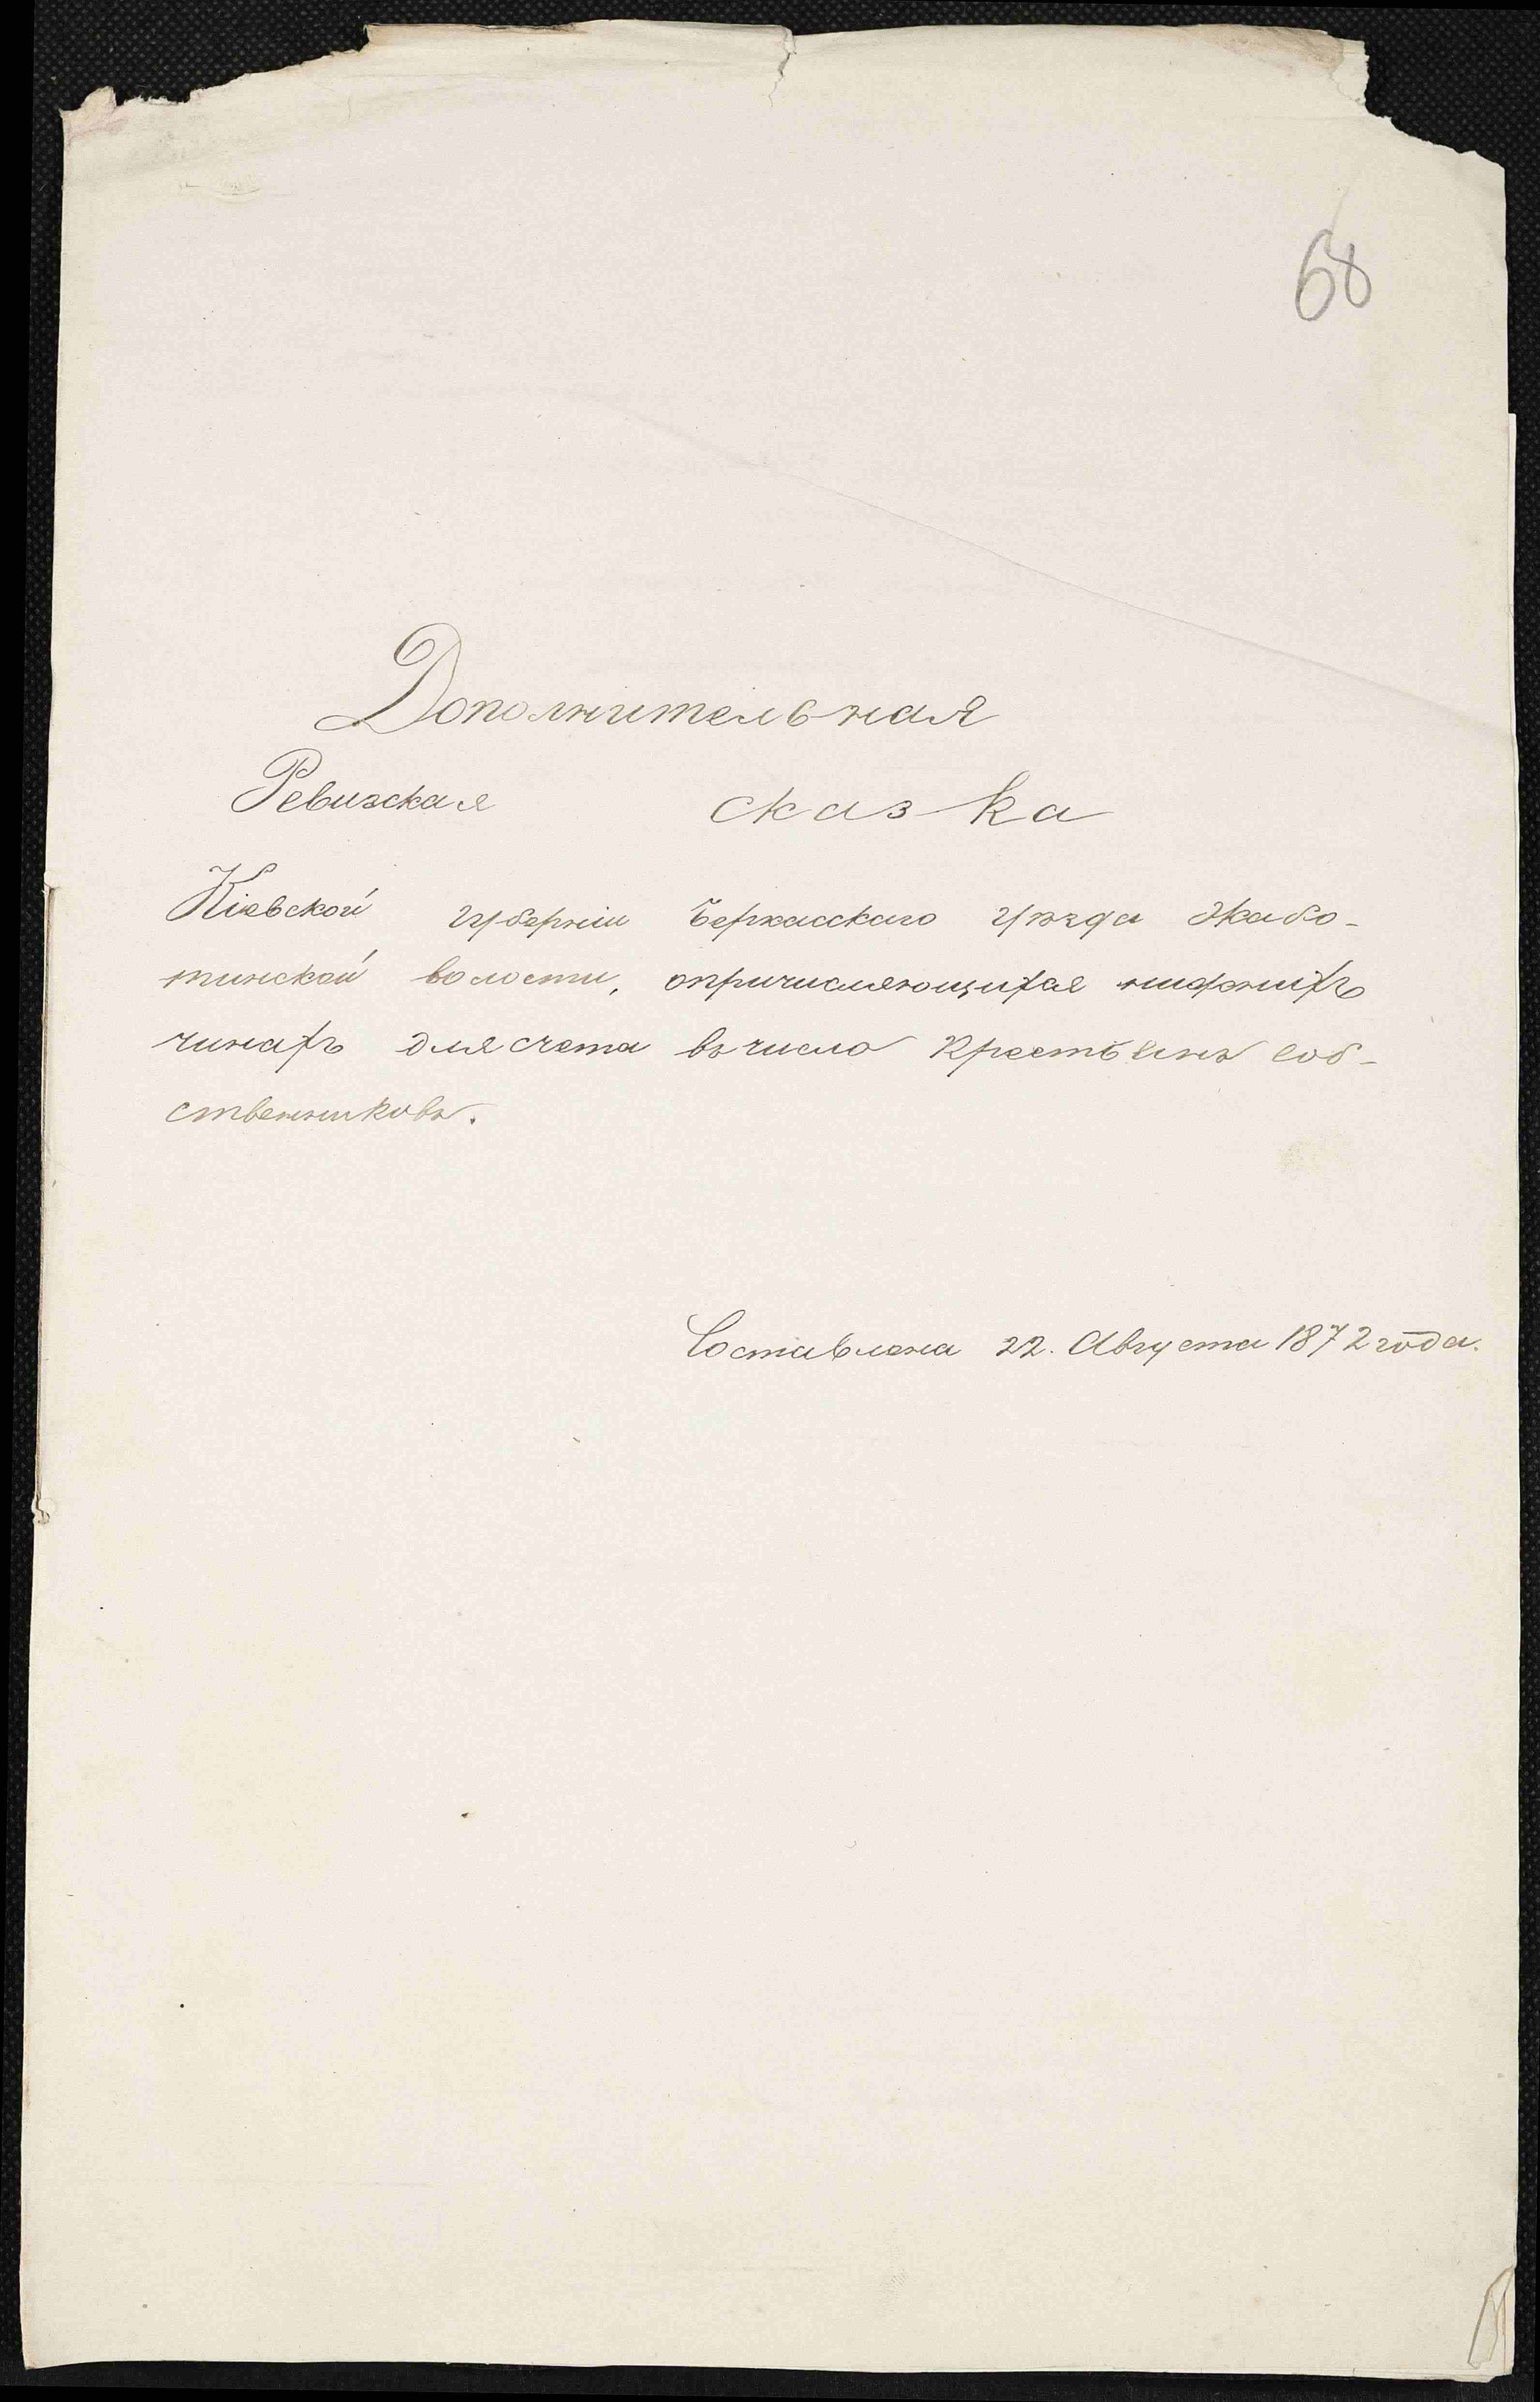 68
Дополнительная
Ревизская сказка
Кіевской губерніи Черкасскаго уѣзда Жабо-
тинской волости, опричисляющихся нижнихъ
чинахъ для счета въ число Крестьянъ соб-
ственниковъ.
Составлена 22. Августа 1872 года.